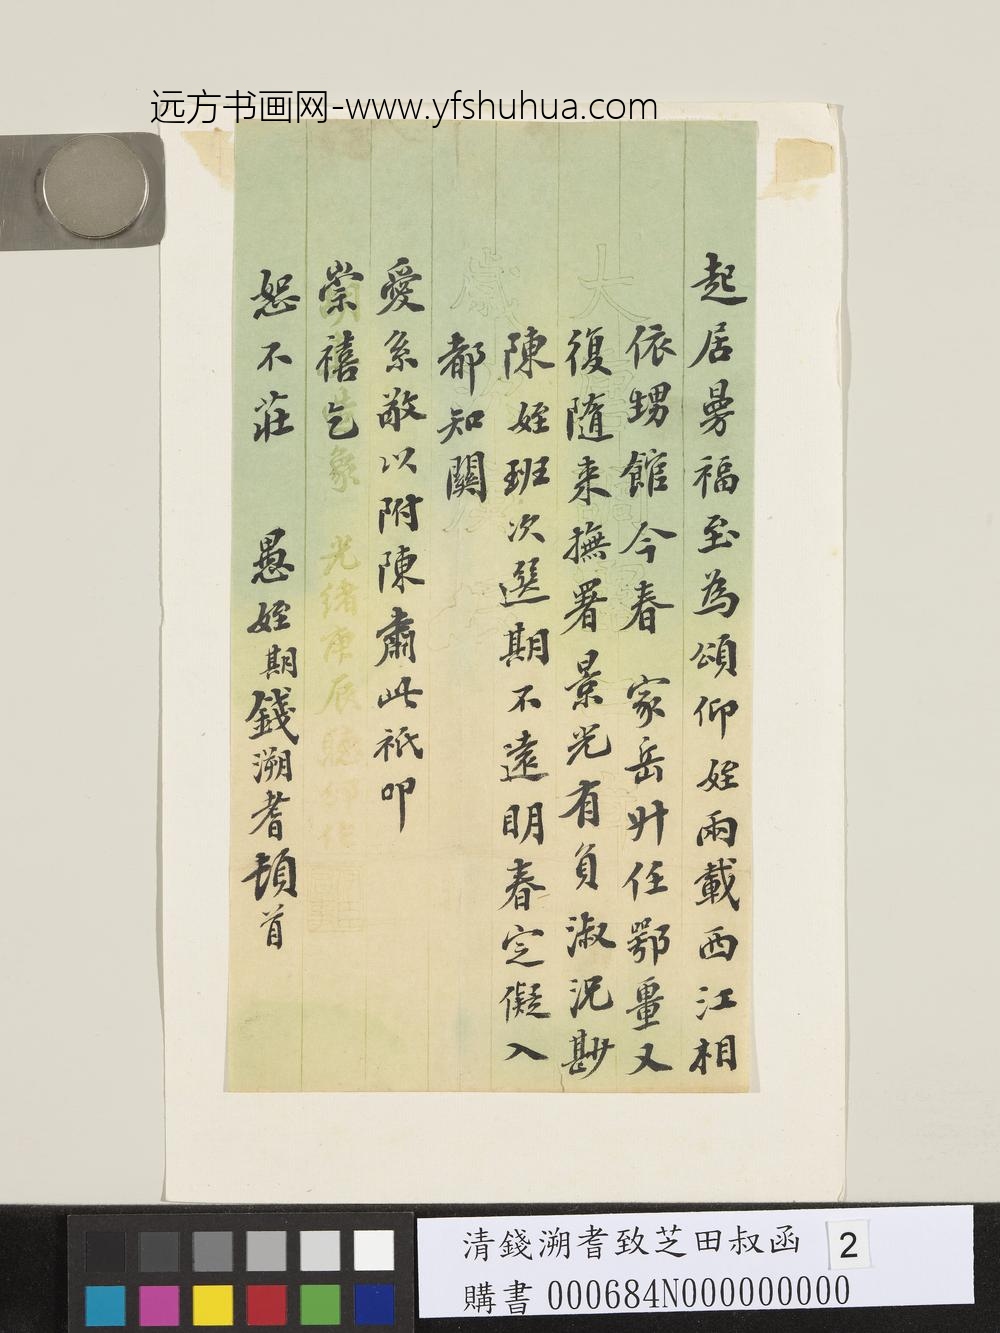 远方书画网-www.yfshuhua.com
起居曼福至為頌仰姪兩載西江相
依甥館今春 家岳升任鄂臬又
復隨来撫署景光有負淑況尠
陳姪班次選期不遠明春定儗入
都知關
愛系敬以附陳肅此祇叩
崇禧乞
恕不莊 愚姪期錢溯耆頓首
光緒庚辰
清錢溯耆致芝田叔函 2
購書 000684N000000000